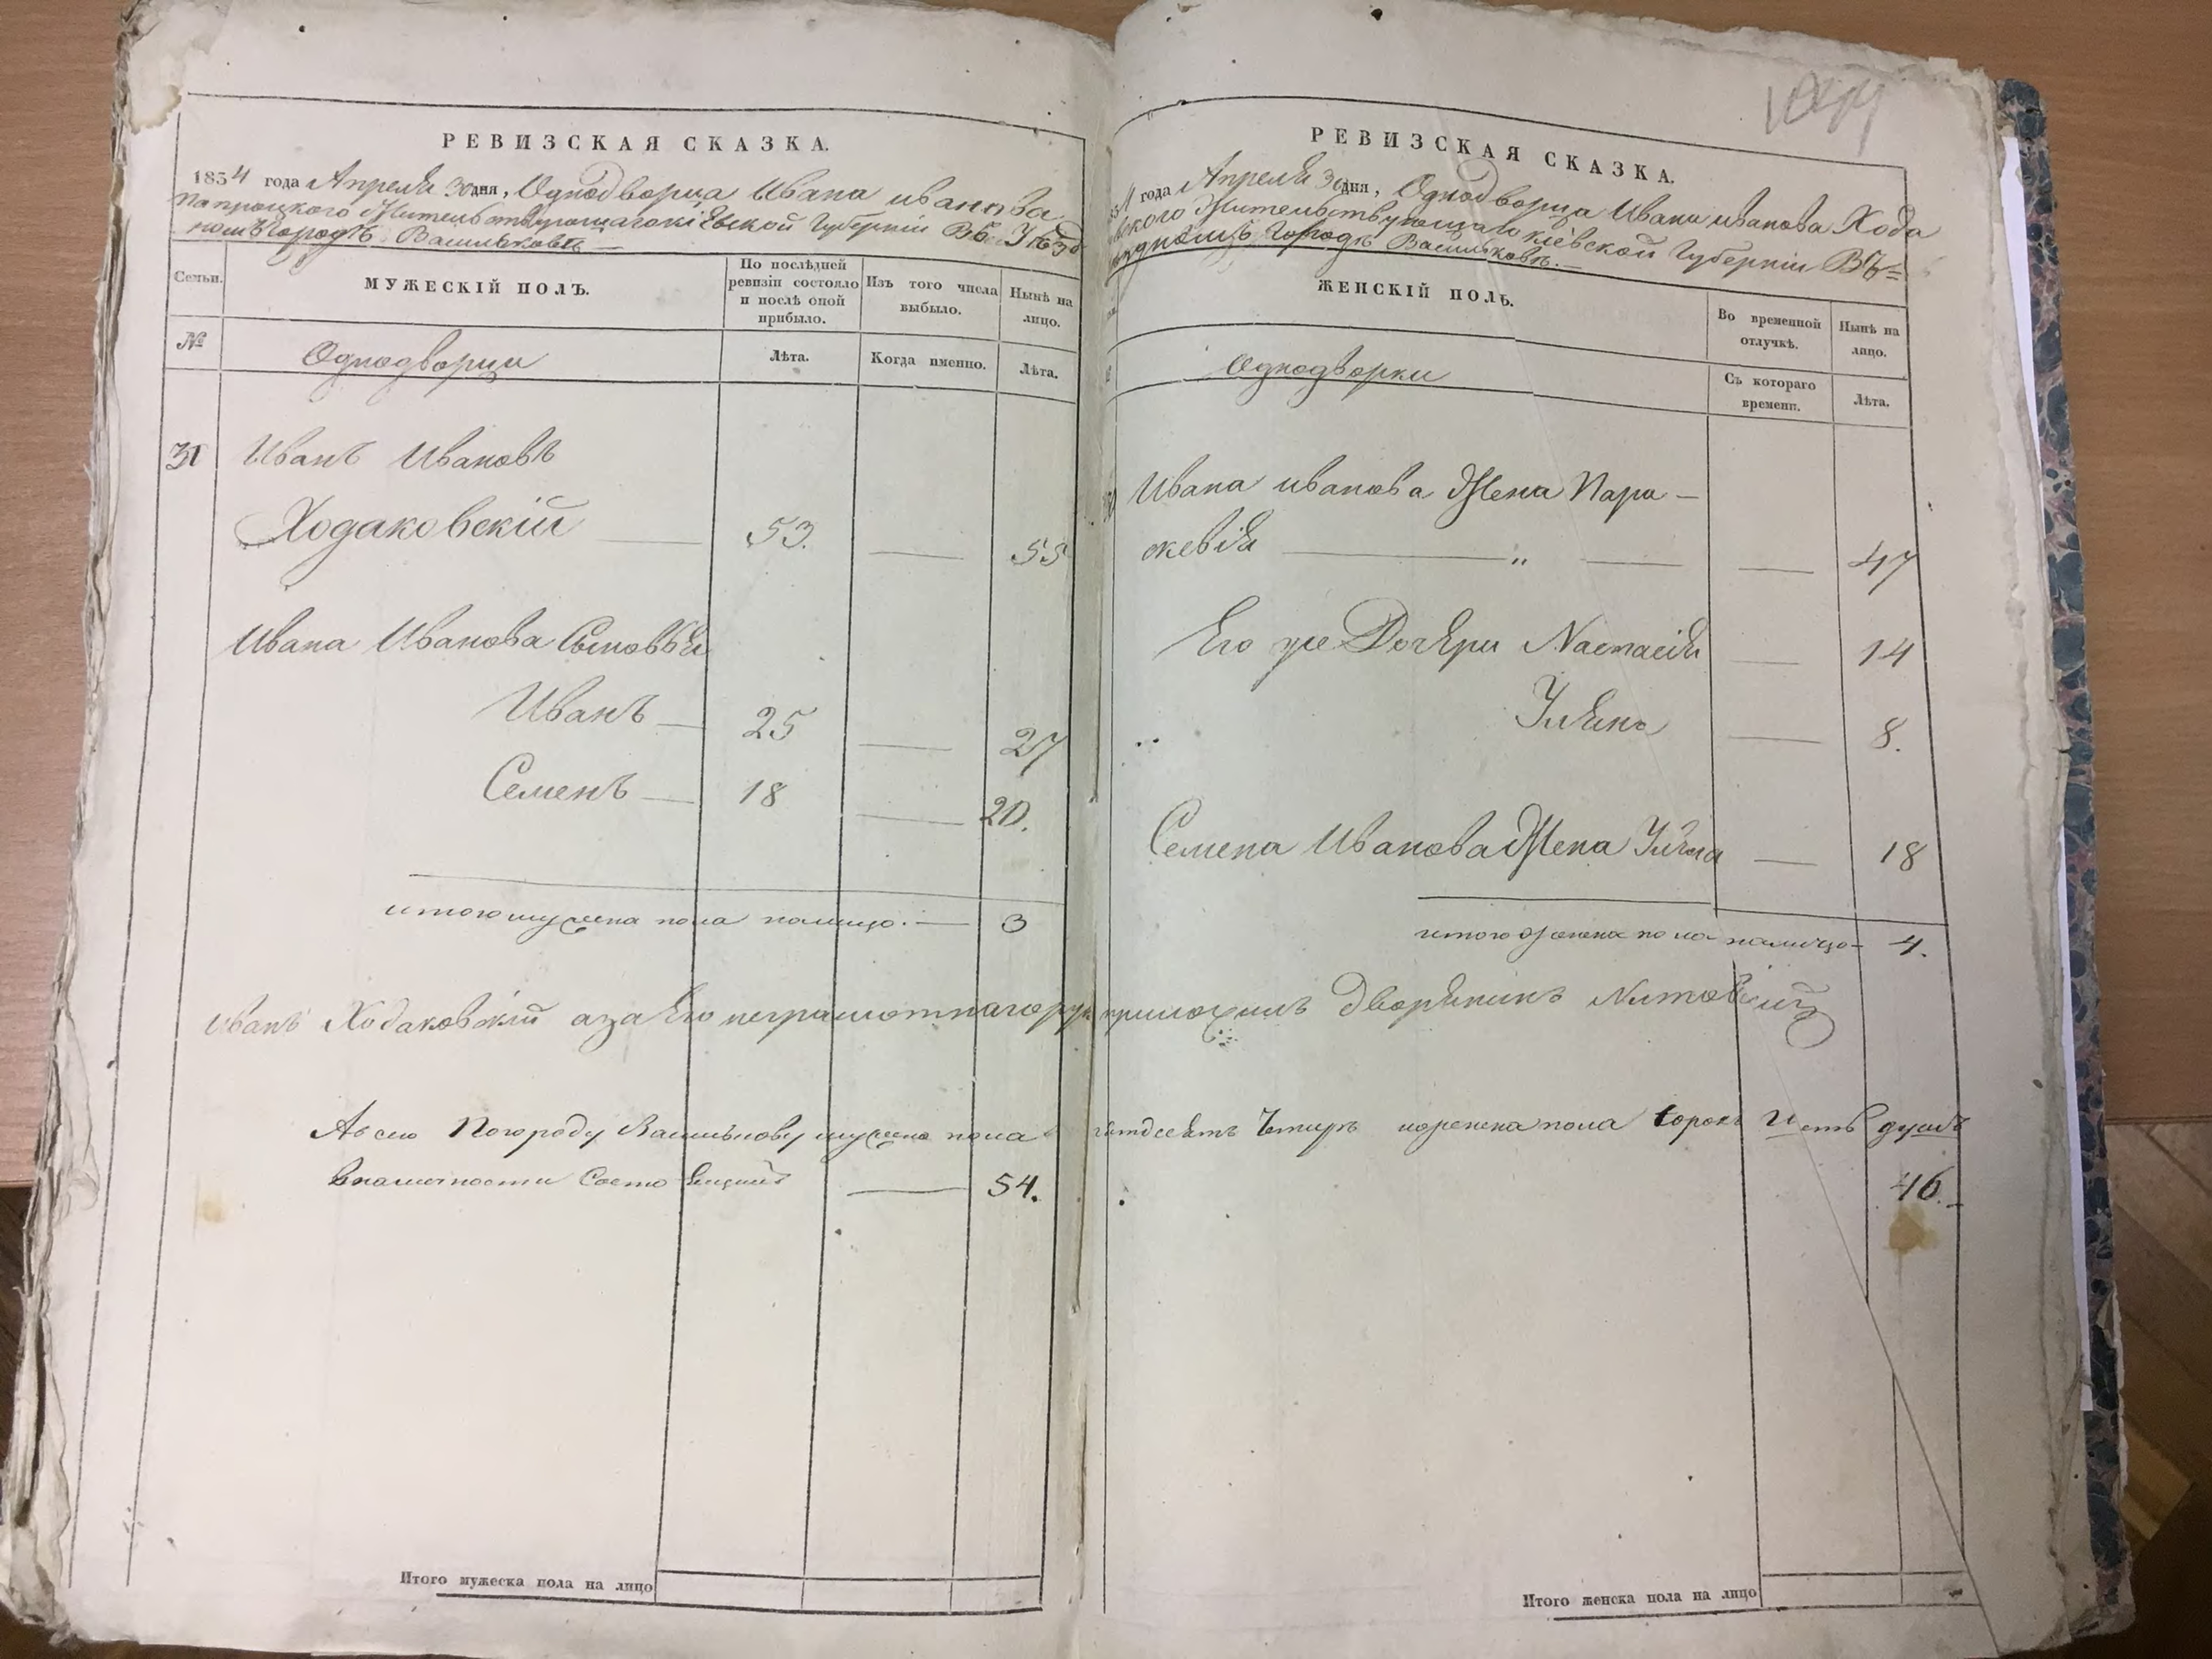 РЕВИЗСКАЯ СКАЗКА.
1834 года Апреля 30 дня, Однодворца Ивана иванова
Папроцкого Жительствующаго кіевской Губерніи Въ Уѣзд
номъ городѣ Васильковѣ
Семьи.
МУЖЕСКІЙ ПОЛЪ.
По послѣдней ревизіи состояло и послѣ оной прибыло.
Изъ того числа выбыло.
Нынѣ на лицо.
№
Однодворцы
Лѣта.
Когда именно.
Лѣта.
31 Иванъ Ивановъ
Ходаковскій 53. 55
Ивана Иванова Сыновья
Иванъ 25 27
Семенъ 18 20.
итого мужеска пола налицо. 3
Иванъ Ходаковскій а за Его неграмотнаго рук
А всею По городу Василькову мужеска пола
в наличности Состоящихъ 54.
Итого мужеска пола на лицо
1044
РЕВИЗСКАЯ СКАЗКА.
34 года Апреля 30 дня, Однодворца Ивана иванова Хода
вского Жительствующаго кіевской Губерніи Въ=
уѣздномъ городѣ Васильковѣ.
ЖЕНСКІЙ ПОЛЪ.
Во временной отлучкѣ.
Нынѣ на лицо.
Однодворки
Съ котораго времени.
Лѣта.
Ивана иванова Жена Пара-
скевія " 47
Его же Дочери Настасія 14
Уляна 8.
Семена Иванова Жена 18
итого женска пола налицо 4.
приложилъ дворянинъ
пятдесятъ Четыре женска пола Сорокъ шесть душъ
46.
Итого женска пола на лицо